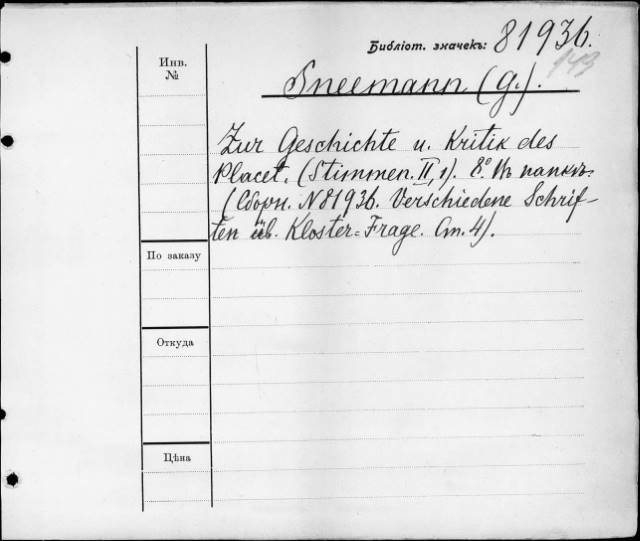 Библіот. значекъ: 81936.
143
Инв.
№
Sneemann (G.).
Zur Geschichte u. Kritik des
Placet. (Stimmen. II, 1). 8º. Въ папкѣ.
(Сборн. N 81936. Verschiedene Schrif-
ten üb. Kloster=Frage. Ст. 4).
По заказу
Откуда
Цѣна